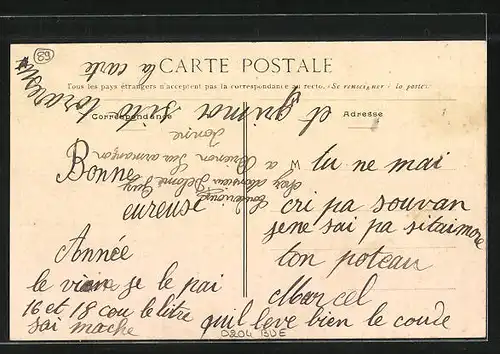 63
CARTE POSTALE
Tous les pays étrangers n'acceptent pas la correspondance au recto. (Se renseigner à la poste)
Correspondance
Adresse
la carte
et
Yonne
a Brienon sur armançon
chez Monsieur
Bonne
eureuse
Année
le vien je le pai
16 et 18 cou le litre
sai mache
tu ne mai
cri pa souvan
jene sai pa sitaimore
ton poteau
Marcel
quil leve bien le coude
0204 BUE